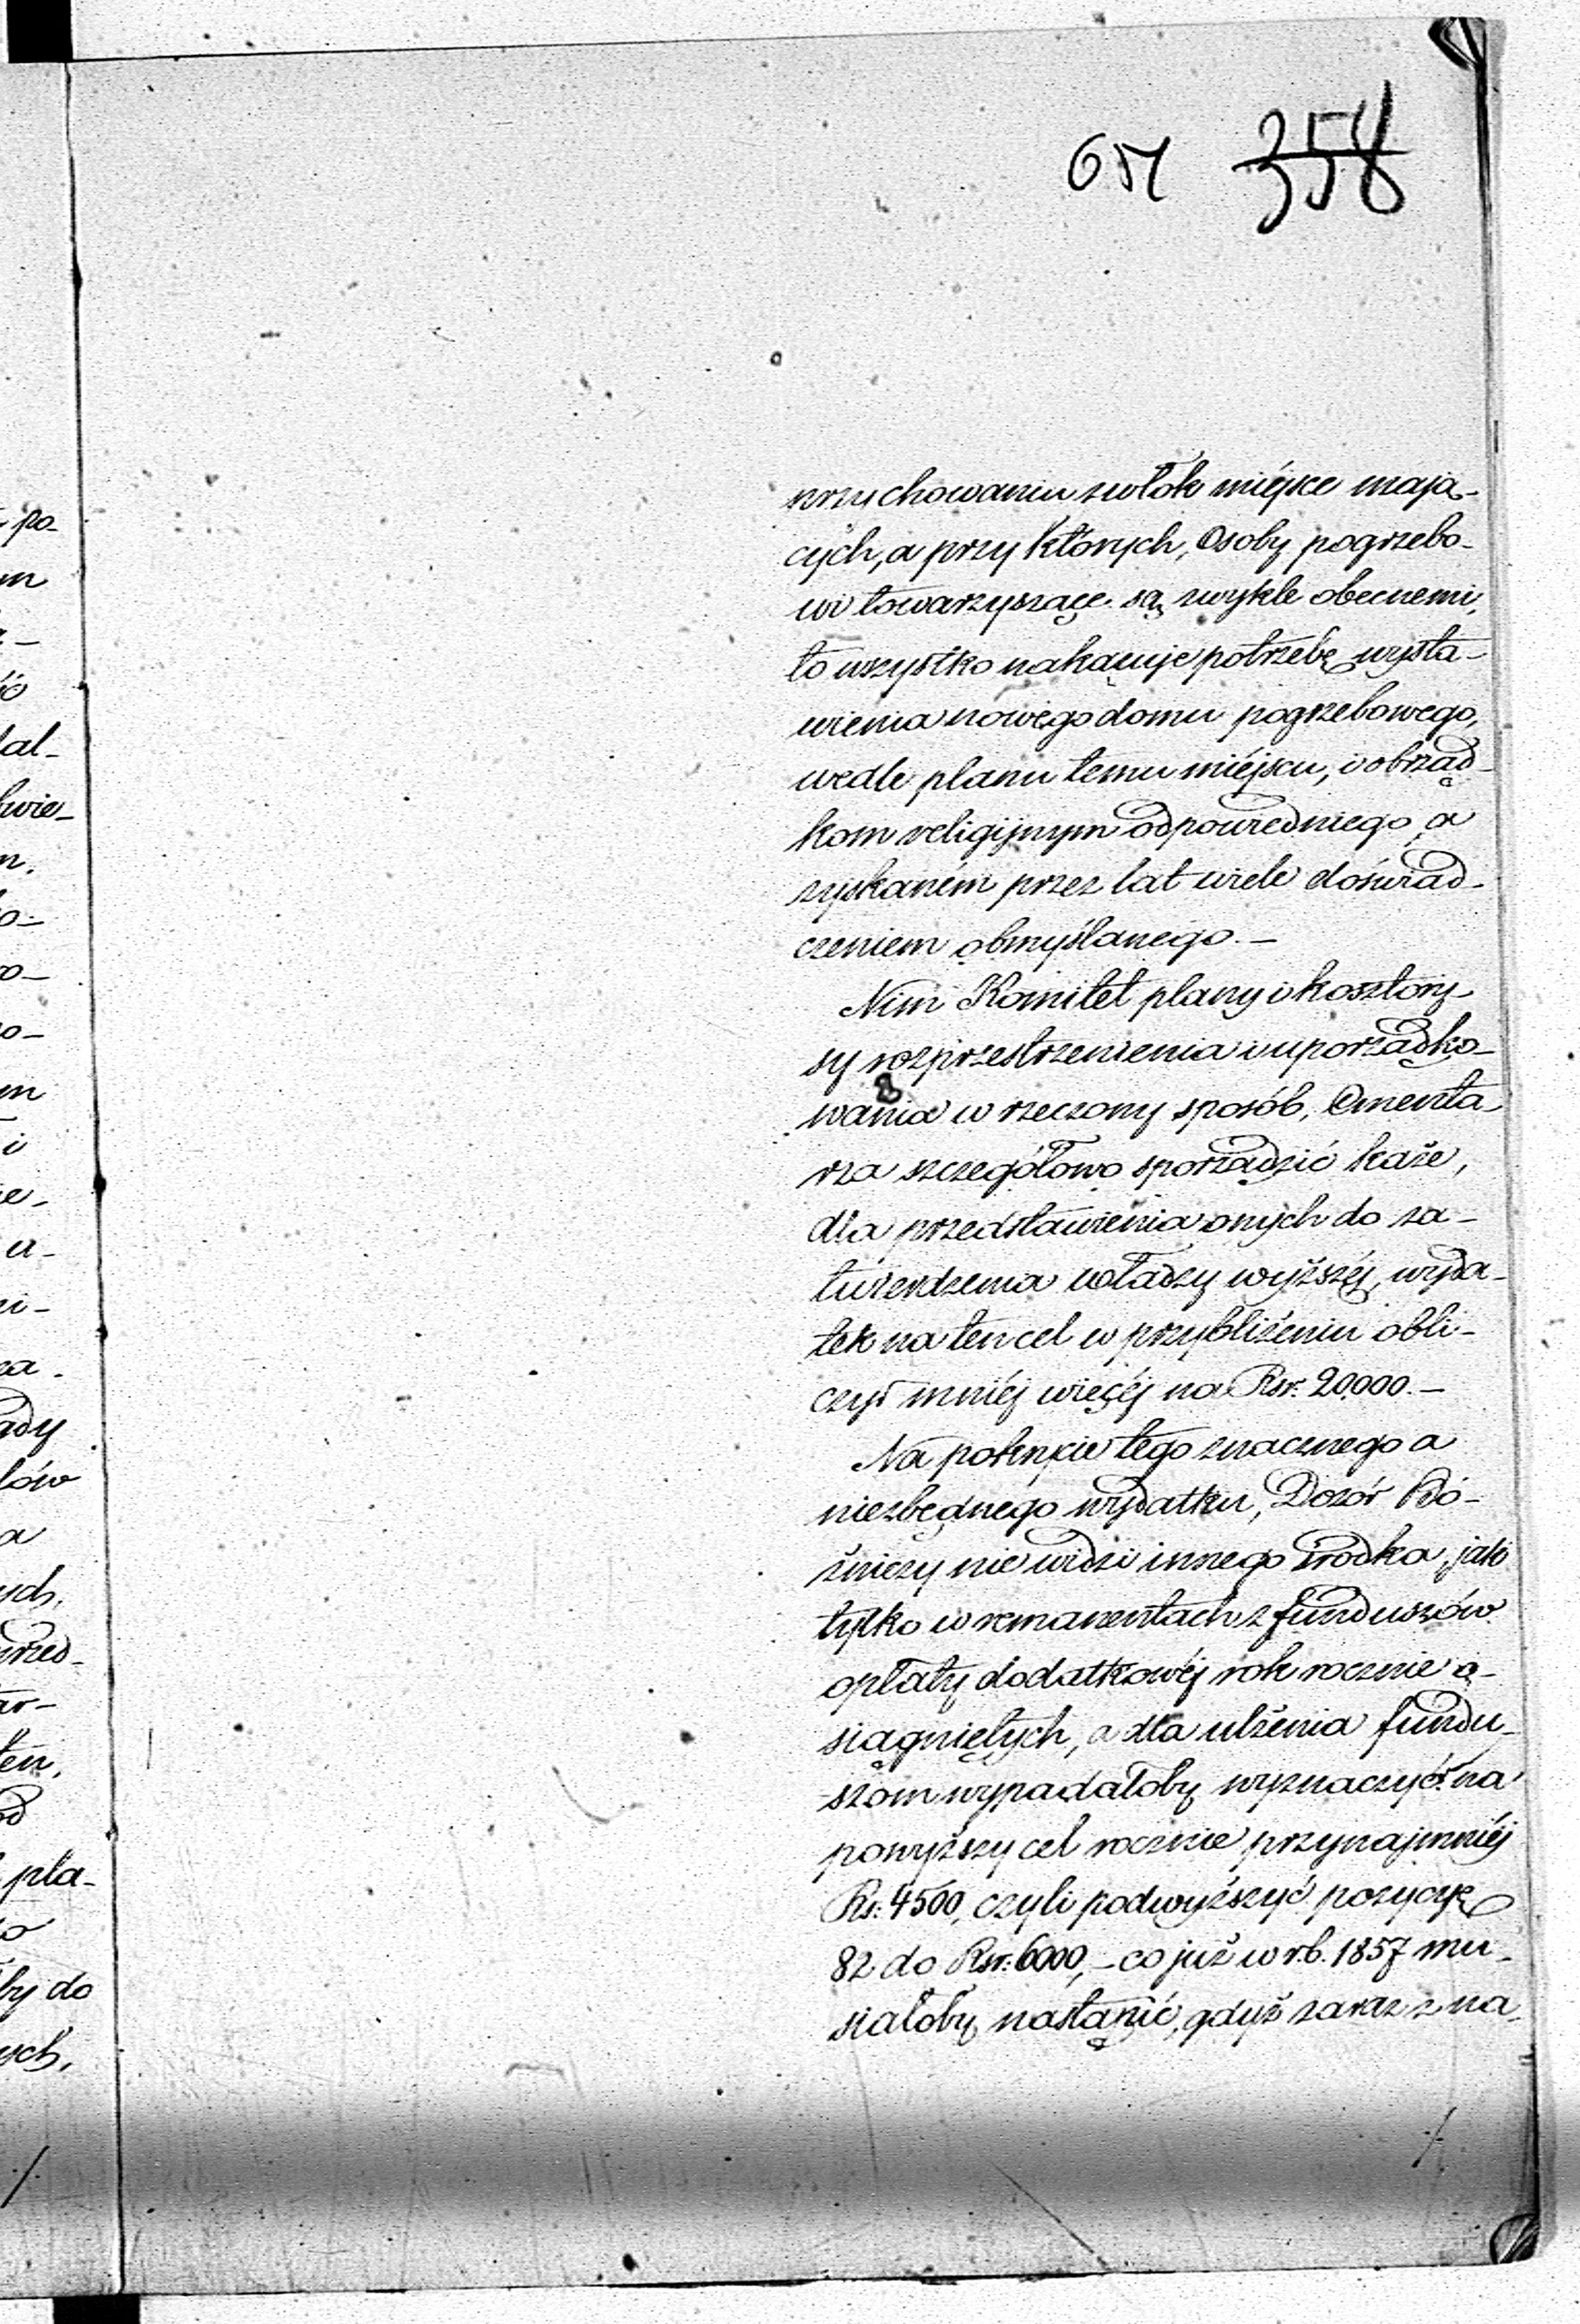 657 358
przy chowaniu zwłok miéjsce mają-
cych, a przy których, Osoby pogrzebo-
wi towarzyszące są zwykle obecnemi,
to wszystko nakazuje potrzebę wysta-
wienia nowego domu pogrzebowego,
wedle planu temu miéjscu, i obrząd-
kom religijnym odpowiedniego, a
zyskaném przez lat wiele doświad-
czeniem obmyślanego. —
Nim Komitet plany i kosztory-
sy rozprzestrzenienia i uporządko-
wania w rzeczony sposób, Cmenta-
rza szczegółowo sporządzić każe,
dla przedstawienia onych do za-
twierdzenia władzy wyższéj, wyda-
tek na ten cel w przybliżeniu obli-
czył mniéj więcéj na Rsr. 20,000. —
Na pokrycie tego znacznego a
niezbędnego wydatku, Dozór Bó-
żniczy nie widzi innego środka, jak
tylko w remanentach z funduszów
opłaty dodatkowéj rok rocznie o-
siągniętych, a dla ulżenia fundu-
szom wypadałoby wyznaczyć na
powyższy cel rocznie przynajmniéj
Rs: 4500, czyli podwyższyć pozycyę
82 do Rsr: 6000, — co już w r.b. 1857 mu-
siałoby nastąpić, gdyż zaraz z na-
po-
m
dal-
wie-
m
i
u-
ady
a
ych,
ten,
pla-
by do
ych,